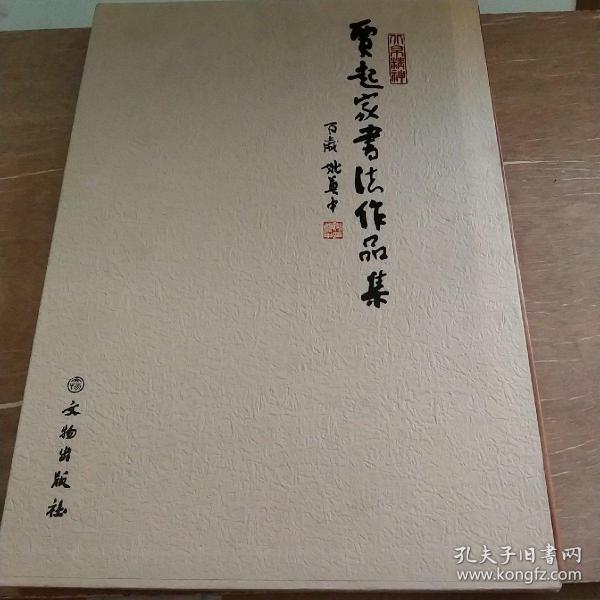 贾起家书法作品集
百歲 姚奠中
文物出版社
孔夫子旧書网
www.kongfz.com